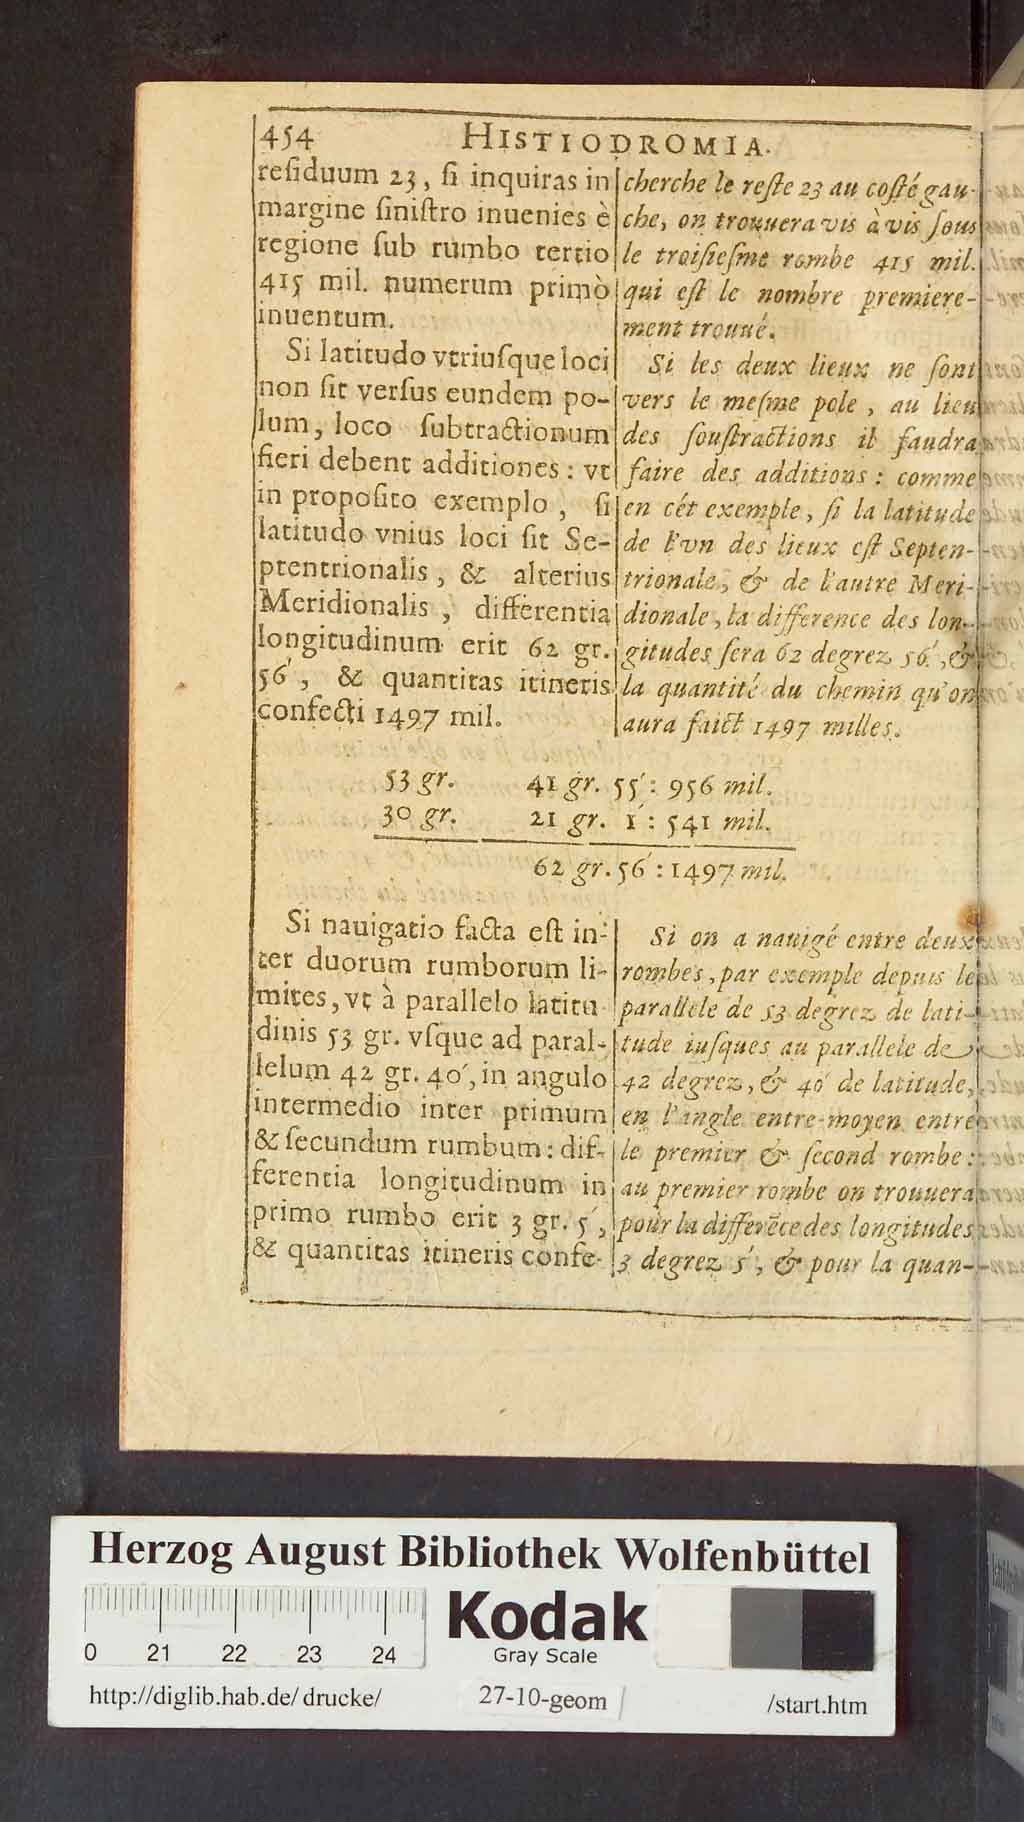 454 HISTIODROMIA.
reſiduum 23, ſi inquiras in
margine ſiniſtro inuenies è
regione ſub rumbo tertio
415 mil. numerum primò
inuentum.
Si latitudo vtriuſque loci
non ſit verſus eundem po-
lum, loco ſubtractionum
fieri debent additiones: vt
in propoſito exemplo, ſi
latitudo vnius loci ſit Se-
ptentrionalis, & alterius
Meridionalis, differentia
longitudinum erit 62 gr.
56′, & quantitas itineris
confecti 1497 mil.
cherche le reſte 23 au coſté gau-
che, on trouuera vis à vis ſous
le troiſieſme rombe 415 mil.
qui eſt le nombre premiere-
ment trouué.
Si les deux lieux ne ſont
vers le meſme pole, au lieu
des ſouſtractions il faudra
faire des additions: comme
en cét exemple, ſi la latitude
de l'vn des lieux eſt Septen-
trionale, & de l'autre Meri-
dionale, la difference des lon-
gitudes ſera 62 degrez 56′, &
la quantité du chemin qu'on
aura faict 1497 milles.
53 gr. 41 gr. 55′: 956 mil.
30 gr. 21 gr. 1′: 541 mil.
62 gr. 56′: 1497 mil.
Si nauigatio facta eſt in-
ter duorum rumborum li-
mites, vt à parallelo latitu-
dinis 53 gr. vſque ad paral-
lelum 42 gr. 40′, in angulo
intermedio inter primum
& ſecundum rumbum: dif-
ferentia longitudinum in
primo rumbo erit 3 gr. 5′,
& quantitas itineris confe-
Si on a nauigé entre deux
rombes, par exemple depuis le
parallele de 53 degrez de lati-
tude iuſques au parallele de
42 degrez, & 40′ de latitude,
en l'angle entre-moyen entre
le premier & ſecond rombe:
au premier rombe on trouuera
pour la differēce des longitudes
3 degrez 5′, & pour la quan-
Herzog August Bibliothek Wolfenbüttel
Kodak
Gray Scale
0 21 22 23 24
http://diglib.hab.de/drucke/ 27-10-geom /start.htm